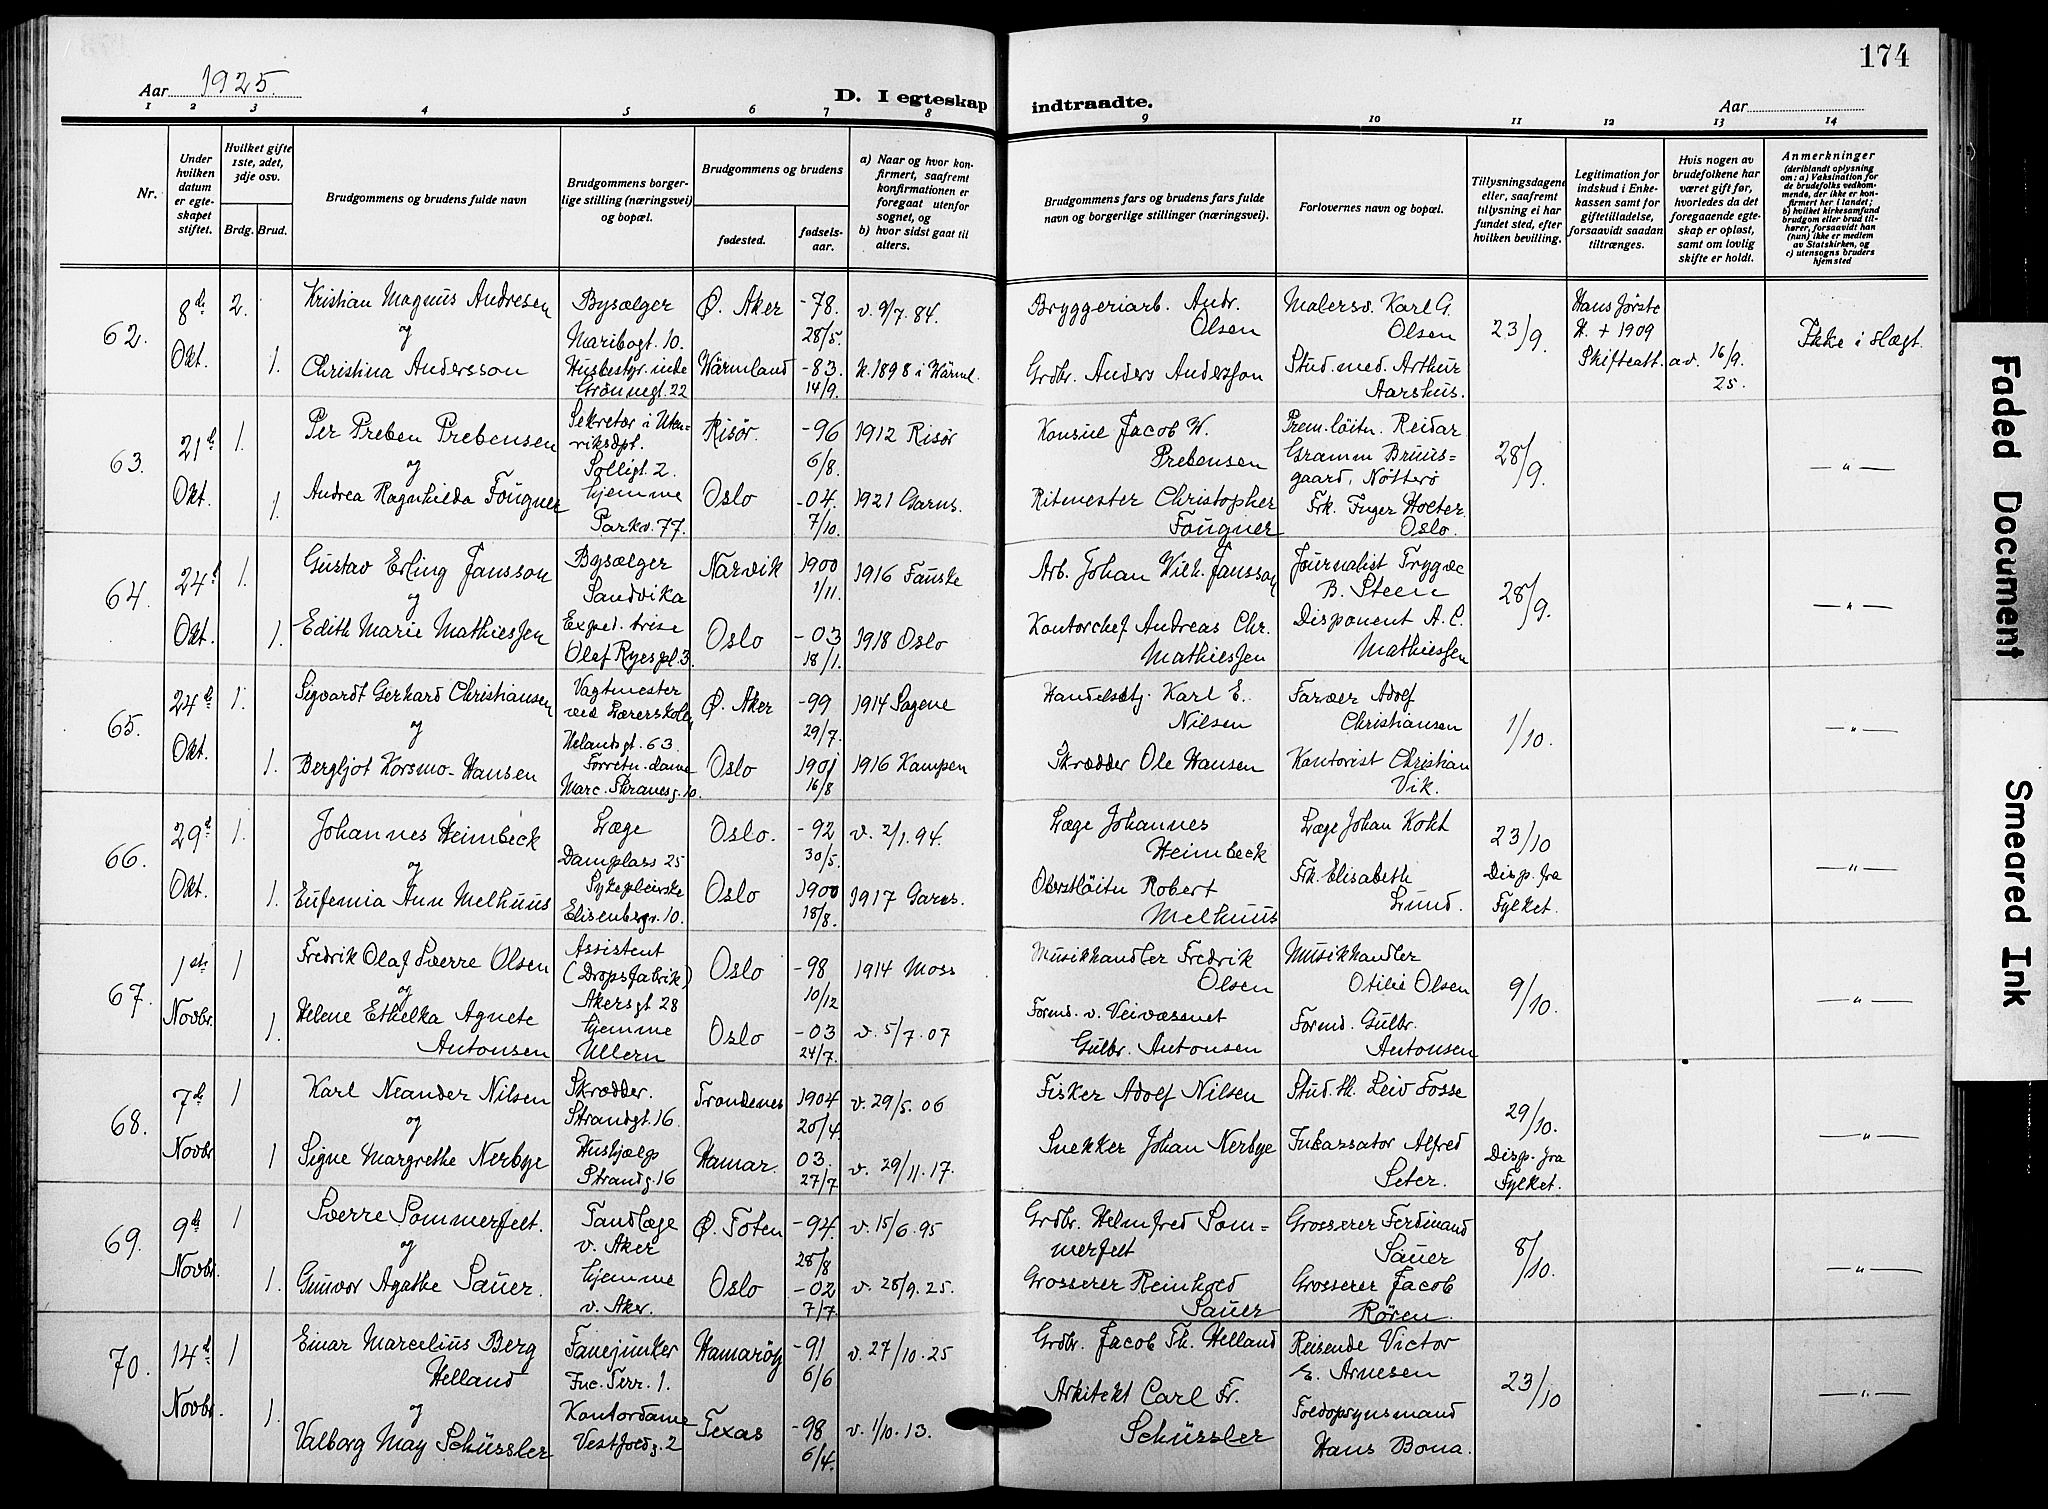 174
Aar 1925.
D. I egteskap indtraadte.
Aar
1 2 3 4 5 6 7 8 9 10 11 12 13 14
Nr.
Under hvilken datum er egteskapet stiftet.
Hvilket gifte 1ste, 2det, 3dje osv.
Brdg. Brud.
Brudgommens og brudens fulde navn
Brudgommens borgerlige stilling (næringsvei) og bopæl.
Brudgommens og brudens
fødested.
fødselsaar.
a) Naar og hvor konfirmert, saafremt konfirmationen er foregaat utenfor sognet, og
b) hvor sidst gaat til alters.
Brudgommens fars og brudens fars fulde navn og borgerlige stillinger (næringsvei).
Forlovernes navn og bopæl.
Tillysningsdagene eller, saafremt tillysning ei har fundet sted, efter hvilken bevilling.
Legitimation for indskud i Enkekassen samt for giftetilladelse, forsaavidt saadan tiltrænges.
Hvis nogen av brudefolkene har været gift før, hvorledes da det foregaaende egteskap er opløst, samt om lovlig skifte er holdt.
Anmerkninger (deriblandt oplysning om: a) Vaksination for de brudefolks vedkommende, der ikke er konfirmert her i landet; b) hvilket kirkesamfund brudgom eller brud tilhører, forsaavidt han (hun) ikke er medlem av Statskirken, og c) utensogns bruders hjemsted
62. 8de Okt. 2. 1.
Kristian Magnus Andresen
og
Christina Andersson
Bysælger
Maribogt. 10.
Husbestyrinde
Grønnegt. 22
Ø. Aker -78. 28/5. v. 9/7. 84.
Wärmland -83. 14/9. K. 1898 i Wärml.
Bryggeriarb. Andr.
Olsen
Grdbr. Anders Andersson
Malersv. Karl G.
Olsen
Stud. med. Arthur
Aarshus.
23/9.
Hans første
H. + 1909
Skifteatt. av. 16/9.
25.
Ikke i slægt.
63. 21de Okt. 1. 1.
Per Preben Prebensen
og
Andrea Ragnhilda Fougner
Sekretær i Uten-
riksdpt.
Solligt. 2.
hjemme
Parkv. 77.
Risør. -96 6/8. 1912 Risør
Oslo -04. 7/10. 1921 Garns.
Konsul Jacob W.
Prebensen
Ritmester Christopher
Fougner
Prem. løitn. Reidar
Gramm Bruus=
gaard, Nøtterø
Frk. Inger Holter.
Oslo.
28/9.
— " —
64. 24de Okt. 1. 1.
Gustav Erling Jansson
og
Edith Marie Mathiessen
Bysælger
Sandvika
Exped. trise
Olaf Ryespl. 3.
Narvik 1900 1/11. 1916 Fauske
Oslo -03 18/1. 1918 Oslo
Arb. Johan Wilh. Jansson
Kontorchef Andreas Chr.
Mathiessen
Journalist Trygve
B. Steen
Disponent A. C.
Mathiessen
28/9.
— " —
65. 24de Okt. 1. 1.
Sigvardt Gerhard Christiansen
og
Bergljot Korsmo-Hansen
Vagtmester
ved Lærerskolen
Helandsgt. 63.
Forretn. dame
Marc. Thranesg. 10.
Ø. Aker -99 29/7. 1914 Sagene
Oslo 1901 16/8 1916 Kampen
Handelsbtj. Karl E.
Nilsen
Skrædder Ole Hansen
Farver Adolf
Christiansen
Kontorist Christian
Vik.
1/10.
— " —
66. 29de Okt. 1. 1.
Johannes Heimbeck
og
Eufemia Ann Melhuus
Læge
Damplass 25
Sykepleierske
Elisenbergv. 10.
Oslo. -92 30/5. v. 2/1. 94.
Oslo 1900 18/8. 1917 Garns.
Læge Johannes
Heimbeck
Oberstløitn Robert
Melhuus
Læge Johan Kokt
Frk. Elisabeth
Lund.
23/10
Disp. fra
Fylket.
— " —
67. 1ste Novbr. 1 1.
Fredrik Olaf Sverre Olsen
og
Helene Ethelka Agnete
Antonsen
Assistent
(Dropsfabrik)
Akersgt 28
hjemme
Ullern
Oslo -98 10/12 1914 Moss
Oslo -03 24/7. v. 5/7. 07
Musikhandler Fredrik
Olsen
Formd. v. Veivæsnet
Gulbr. Antonsen
Musikhandler
Otilie Olsen
Formd. Gulbr.
Antonsen
9/10.
— " —
68. 7de Novbr 1 1
Karl Neander Nilsen
og
Signe Margrethe Nerbye
Skrædder.
Strandgt. 16
Hushjælp
Strandg. 16
Trondenes 1904 20/4. v. 29/5. 06
Hamar. 03. 27/7 v. 29/11. 17.
Fisker Adolf Nilsen
Snekker Johan Nerbye
Stud. th. Leiv Fosse
Inkassator Alfred
Seter.
29/10.
Disp. fra
Fylket.
— " —
69. 9de Novbr. 1 1.
Sverre Sommerfelt.
og
Gunvor Agathe Sauer.
Tandlæge
v. Aker
hjemme
v. Aker.
Ø. Toten -94. 28/8 v. 15/6. 95
Oslo -02 7/7. v. 28/9. 25.
Grdbr. Helmfred Som=
merfelt
Grosserer Reinhold
Sauer
Grosserer Ferdinand
Sauer
Grosserer Jacob
Røren.
8/10.
— " —
70. 14de Novbr. 1 1.
Einar Marcelius Berg
Helland
og
Valborg May Schüssler
Fanejunker
Inc. Terr. 1.
Kontordame
Vestfoldg. 2
Hamarøy -91 6/6 v. 27/10. 25
Texas -98 6/4. v. 1/10. 13.
Grdbr. Jacob Th. Helland
Arkitekt Carl Fr.
Schüssler
Reisende Victor
E. Arnesen
Toldopsynsmand
Hans Bona.
23/10
— " —
Faded Document
Smeared Ink